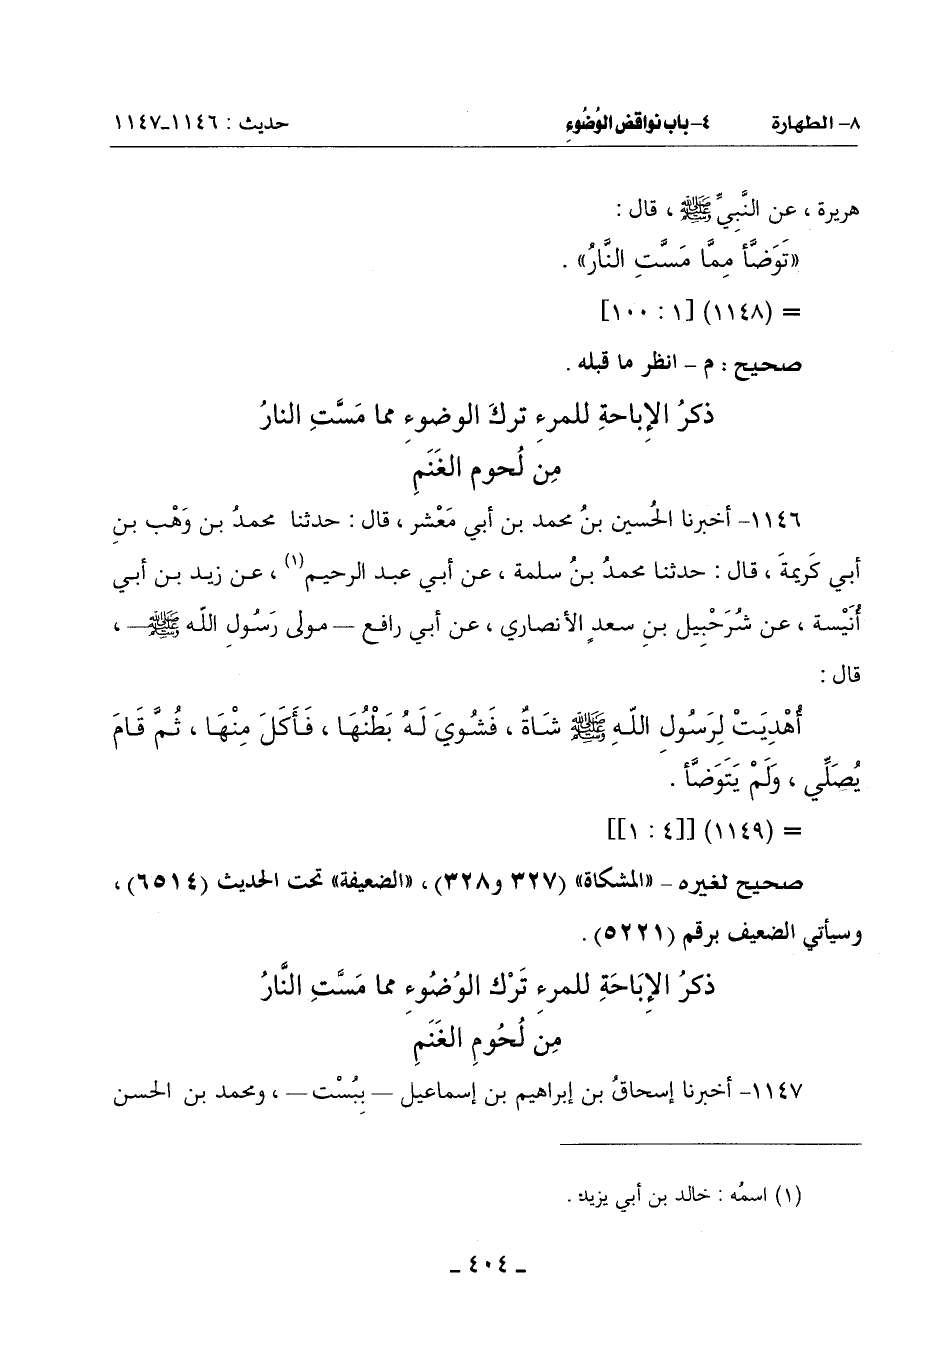 ٨- الطهارة ٤- باب نواقض الوُضُوءِ حديث : ١١٤٦-١١٤٧
هريرة ، عن النَّبِيِّ ﷺ ، قال :
«تَوَضَّأ مِمَّا مَسَّتِ النَّارُ» .
= (١١٤٨) [١ : ١٠٠]
صحيح : م - انظر ما قبله .
ذكرُ الإِباحةِ للمرءِ تركَ الوضوءِ مما مَسَّتِ النارُ
مِن لُحوم الغَنَمِ
١١٤٦- أخبرنا الحُسين بنُ محمد بن أبي مَعْشر ، قال : حدثنا محمدُ بن وَهْب بنِ
أبي كَرِيمَة ، قال : حدثنا محمدُ بنُ سلمة ، عن أبي عبد الرحيم(١) ، عن زيد بن أبي
أُنَيْسة ، عن شُرَحْبِيل بنِ سعدٍ الأنصاري ، عن أبي رافع — مولى رَسُولِ اللّه ﷺ — ،
قال :
أُهْدِيَتْ لِرَسُولِ اللّهِ ﷺ شَاةٌ ، فَشُوِيَ لَهُ بَطْنُهَا ، فَأَكَلَ مِنْهَا ، ثُمَّ قَامَ
يُصَلِّي ، وَلَمْ يَتَوَضَّأ .
= (١١٤٩) [[٤ : ١]]
صحيح لغيره - «المشكاة» (٣٢٧ و٣٢٨) ، «الضعيفة» تحت الحديث (٦٥١٤) ،
وسيأتي الضعيف برقم (٥٢٢١) .
ذكرُ الإِبَاحَةِ للمرءِ تَرْك الوُضُوءِ مما مَسَّتِ النَّارُ
مِن لُحُومِ الغَنَمِ
١١٤٧- أخبرنا إسحاقُ بن إبراهيم بن إسماعيل — بِبُسْت — ، ومحمد بن الحسن
(١) اسمُه : خالد بن أبي يزيد .
- ٤٠٤ -